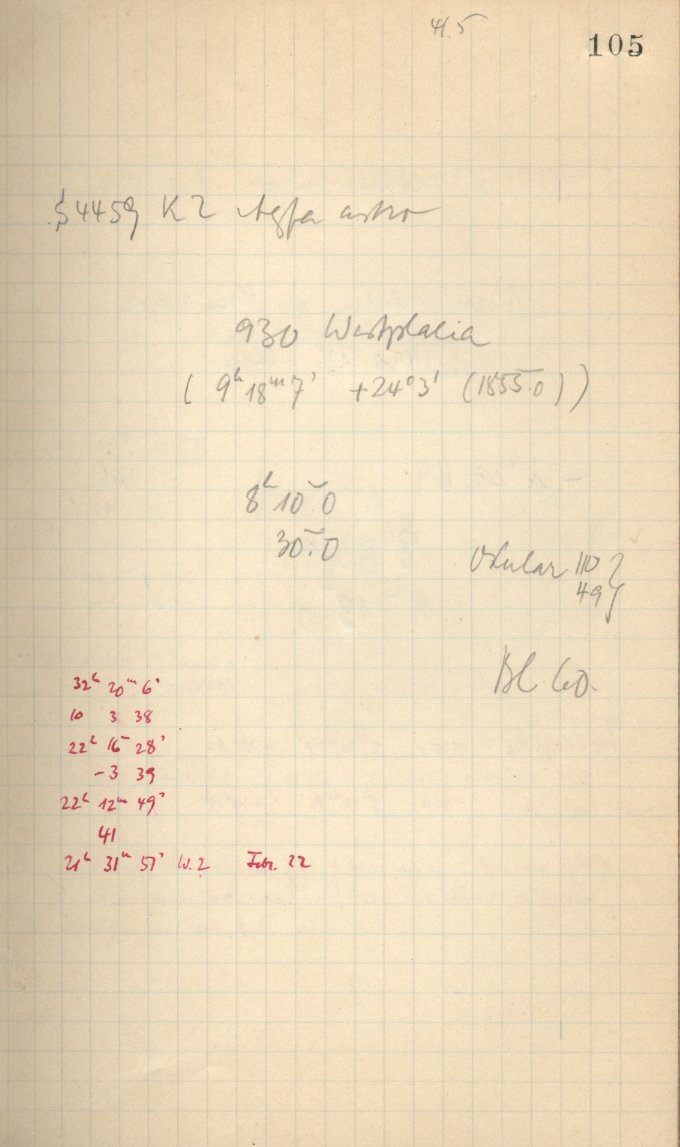 41.5
105
S4459 K2 Agfa astro
930 Westphalia
( 9h 18m 7s +24°3' (1855.0) )
8h 10m.0
30m.0
Okular 110
49
Bl. 60.
32h 20m 6s
10 3 38
22h 16m 28s
-3 39
22h 12m 49s
41
21h 31m 51s W.Z Febr. 22